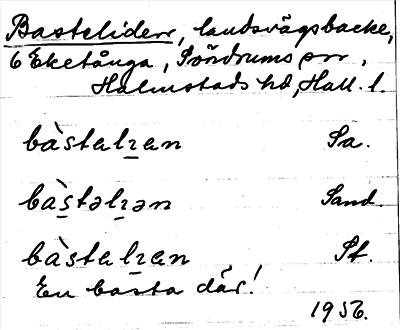 Bastelider, landsvägsbacke,
6 Eketånga, Söndrums sn,
Halmstads hd, Hall. l.
bàstalɪan Sa.
bàs̲təlɪ̲ən Sand.
bàstalɪ̲an St.
En basta där!
1956.